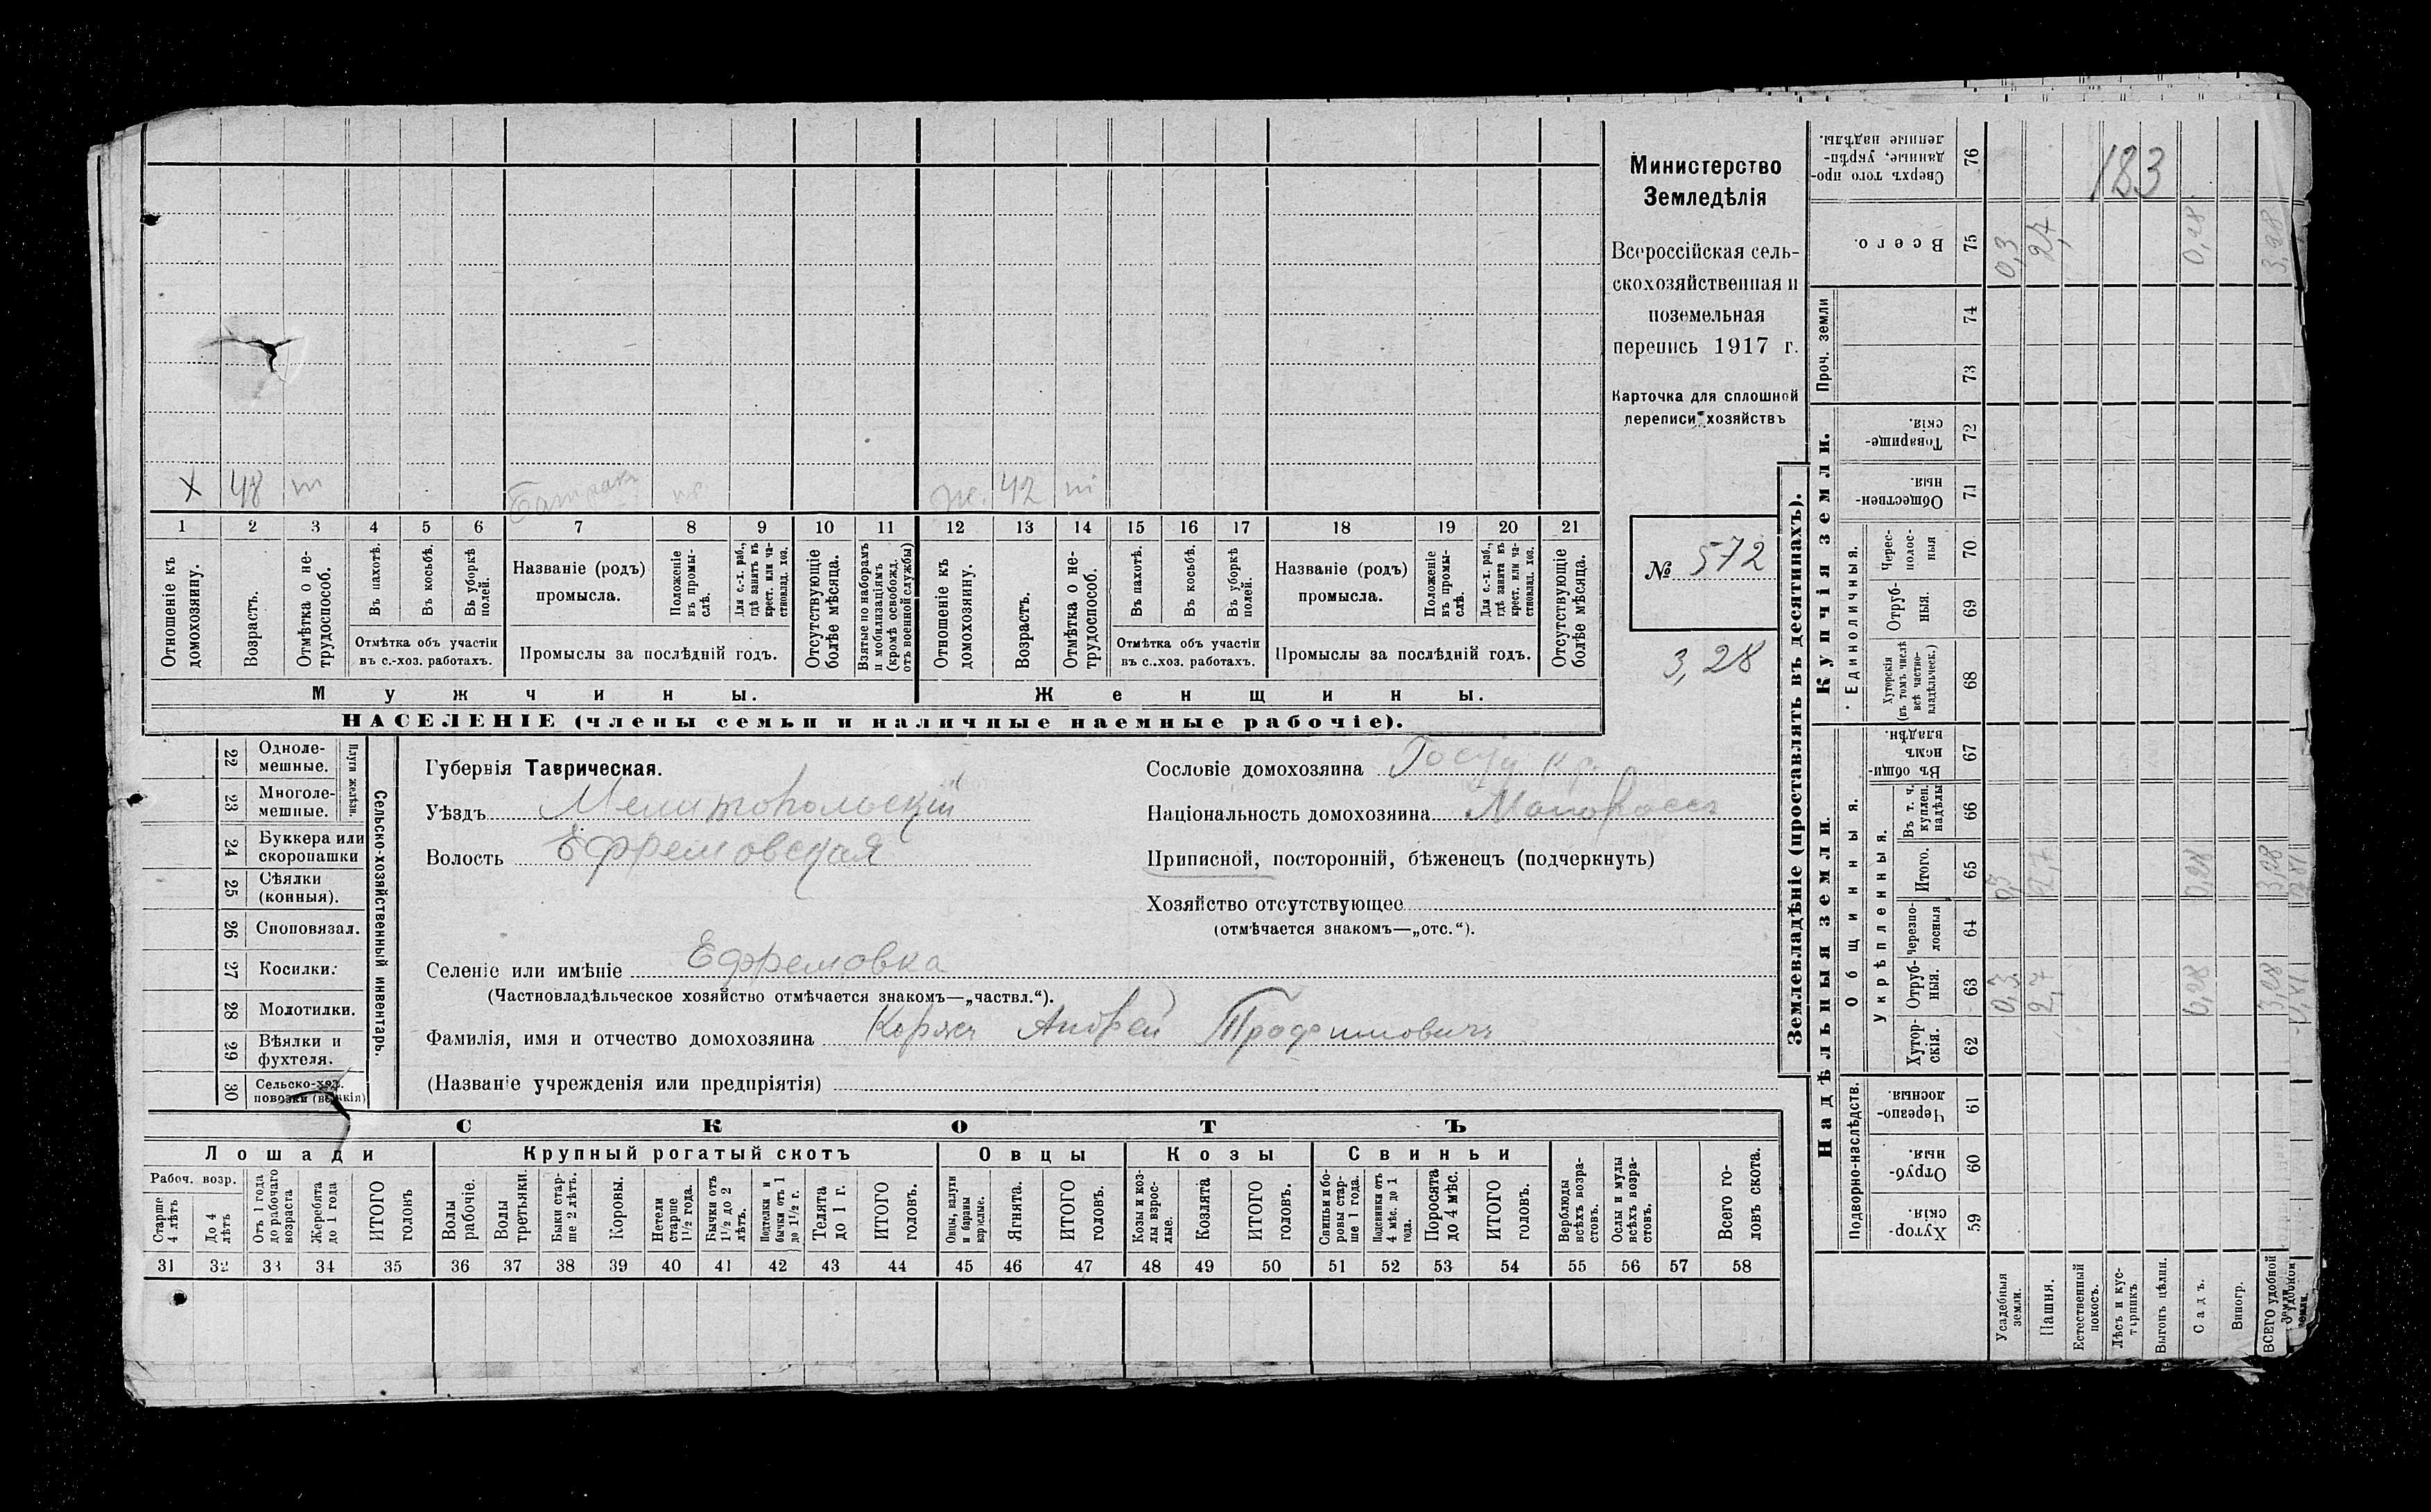 Министерство
Земледѣлія
Всероссійская сель-
скохозяйственная и
поземельная
перепись 1917 г.
Карточка для сплошной
переписи хозяйствъ
№ 572
3,28
183
Х 48 т Батракъ ж. 42 т
1 2 3 4 5 6 7 8 9 10 11 12 13 14 15 16 17 18 19 20 21
Отношеніе къ домохозяину.
Возрастъ.
Отмѣтка о не-трудоспособ.
Въ пахотѣ.
Въ косьбѣ.
Въ уборкѣ полей.
Отмѣтка объ участіи
въ с.-хоз. работахъ.
Названіе (родъ)
промысла.
Положеніе въ промы-слѣ.
Для с.-х. раб., гдѣ занятъ въ крест. или ча-стновлад. хоз.
Промыслы за послѣдній годъ.
Отсутствующіе болѣе мѣсяца.
Взятые по наборамъ и мобилизаціямъ (кромѣ освобожд. отъ военной службы)
Отношеніе къ домохозяину.
Возрастъ.
Отмѣтка о не-трудоспособ.
Въ пахотѣ.
Въ косьбѣ.
Въ уборкѣ полей.
Отмѣтка объ участіи
въ с..хоз. работахъ.
Названіе (родъ)
промысла.
Положеніе въ промы-слѣ.
Для с.-х. раб., гдѣ занята въ крест. или ча-стновлад. хоз.
Промыслы за послѣдній годъ.
Отсутствующіе болѣе мѣсяца.
Мужчины.
Женщины.
НАСЕЛЕНІЕ (члены семьи и наличные наемные рабочіе).
Сельско-хозяйственный инвентарь.
Плуги желѣзн.
22 Одноле-мешные.
23 Многоле-мешные.
24 Буккера или скоропашки
25 Сѣялки (конныя).
26 Сноповязал.
27 Косилки.
28 Молотилки.
29 Вѣялки и фухтеля.
30 Сельско-хоз. повозки
Губернія Таврическая.
Уѣздъ Мелитопольскій
Волость Ефремовская
Сословіе домохозяина Госуд. кр.
Національность домохозяина Малороссъ
Приписной, посторонній, бѣженецъ (подчеркнуть)
Хозяйство отсутствующее
(отмѣчается знакомъ—„отс.“).
Селеніе или имѣніе Ефремовка
(Частновладѣльческое хозяйство отмѣчается знакомъ—„частвл.“).
Фамилія, имя и отчество домохозяина Коржъ Андрей
(Названіе учрежденія или предпріятія)
СКОТЪ
Лошади
Крупный рогатый скотъ
Овцы
Козы
Свиньи
Рабоч. возр.
Старше 4 лѣтъ
До 4 лѣтъ
Отъ 1 года до рабочаго возраста
Жеребята до 1 года
ИТОГО головъ
Волы рабочіе.
Волы третьяки.
Быки стар-ше 2 лѣтъ.
Коровы.
Нетели старше 1½ года.
Бычки отъ 1½ до 2 лѣтъ.
Подтелки и бычки отъ 1 до 1½ г.
Телята до 1 г.
ИТОГО головъ.
Овцы, валухи и бараны взрослые.
Ягнята.
ИТОГО головъ.
Козы и коз-лы взрос-лые.
Козлята
ИТОГО головъ.
Свиньи и бо-ровы стар-ше 1 года.
Подсвинки отъ 4 мѣс. до 1 года.
Поросята до 4 мѣс.
ИТОГО головъ.
Верблюды всѣхъ возра-стовъ.
Ослы и мулы всѣхъ возра-стовъ.
Всего го-ловъ скота.
31 32 33 34 35 36 37 38 39 40 41 42 43 44 45 46 47 48 49 50 51 52 53 54 55 56 57 58
Землевладѣніе (проставлять въ десятинахъ).
Надѣльныя земли
Купчія земли.
Проч. земли
Подворно-наслѣдств.
Общинныя.
Укрѣпленныя.
Единоличныя.
76 Сверхъ того про-данные, укрѣп-ленные надѣлы.
75 Всего. 0,3 2,7 0,28 3,28
74
73
72 Товарище-скія.
71 Обществен-ныя.
70 Черес-полос-ныя
69 Отруб-ныя.
68 Хуторскія (въ томъ числѣ всѣ частно-владѣльческ.)
67 Въ общин-номъ владѣн.
66 Въ т. ч. куплен. надѣлы
65 Итого. 0,3 2,7 0,28 3,28
64 Черезпо-лосныя
63 Отруб-ныя. 0,3 2,7 0,28 3,28
62 Хутор-скія.
61 Черезпо-лосныя.
60 Отруб-ныя.
59 Хутор-скія.
Усадебныя земли.
Пашня.
Естественный покосъ.
Лѣсъ и кус-тарникъ
Выгонъ цѣлин.
Садъ.
Виногр.
ВСЕГО удобной земли